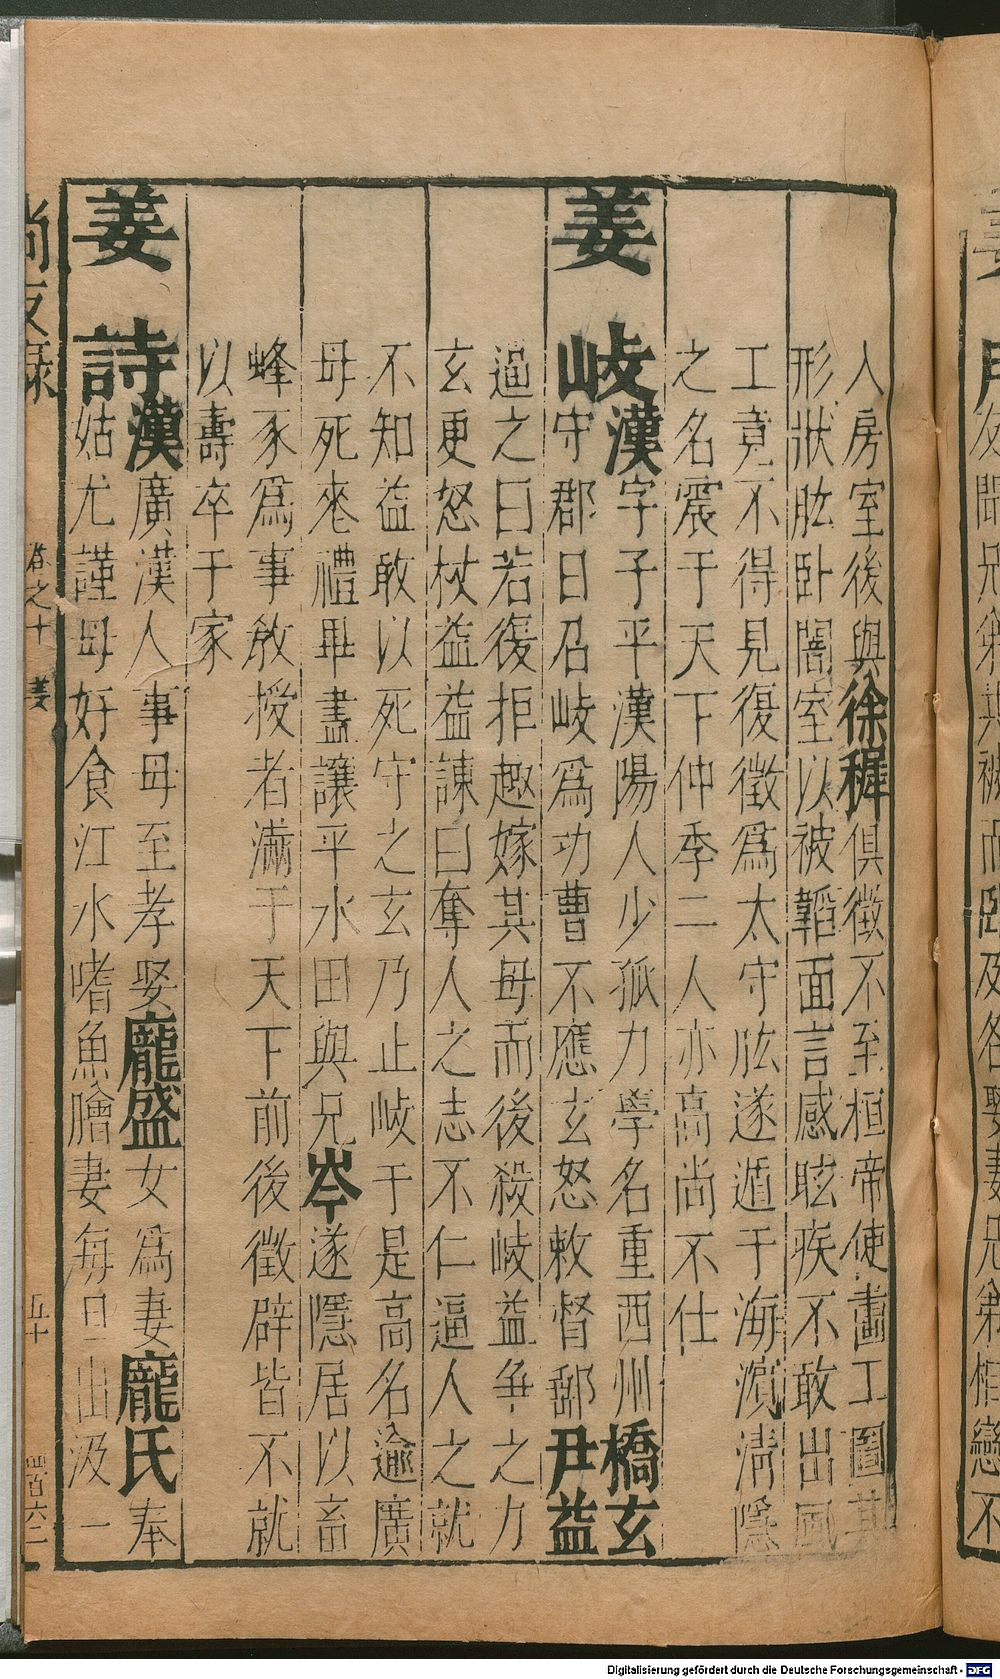 入房室後與徐穉俱徵不至桓帝使畫工圖其
形狀肱卧闇室以被韜面言感眩疾不敢出風
工竟不得見復徵爲太守肱遂遁于海濵清隱
之名震于天下仲季二人亦高尚不仕
姜岐漢字子平漢陽人少孤力學名重西州橋玄
守郡日召岐爲功曹不應玄怒敕督郵尹益
逼之曰若復拒趣嫁其母而後殺岐益争之力
玄更怒杖益益諫曰奪人之志不仁逼人之就
不知益敢以死守之玄乃止岐于是高名逾廣
母死䘮禮畢盡讓平水田與兄岑遂隱居以畜
蜂豕爲事教授者滿于天下前後徵辟皆不就
以壽卒于家
姜詩漢廣漢人事母至孝娶龐盛女爲妻龐氏奉
姑尤謹母好食江水嗜魚膾妻每旦出汲一
尚友録 卷之十 姜 五十 四百六二
友聞兄弟共被而卧及各娶妻兄弟相戀不
Digitalisierung gefördert durch die Deutsche Forschungsgemeinschaft - DFG